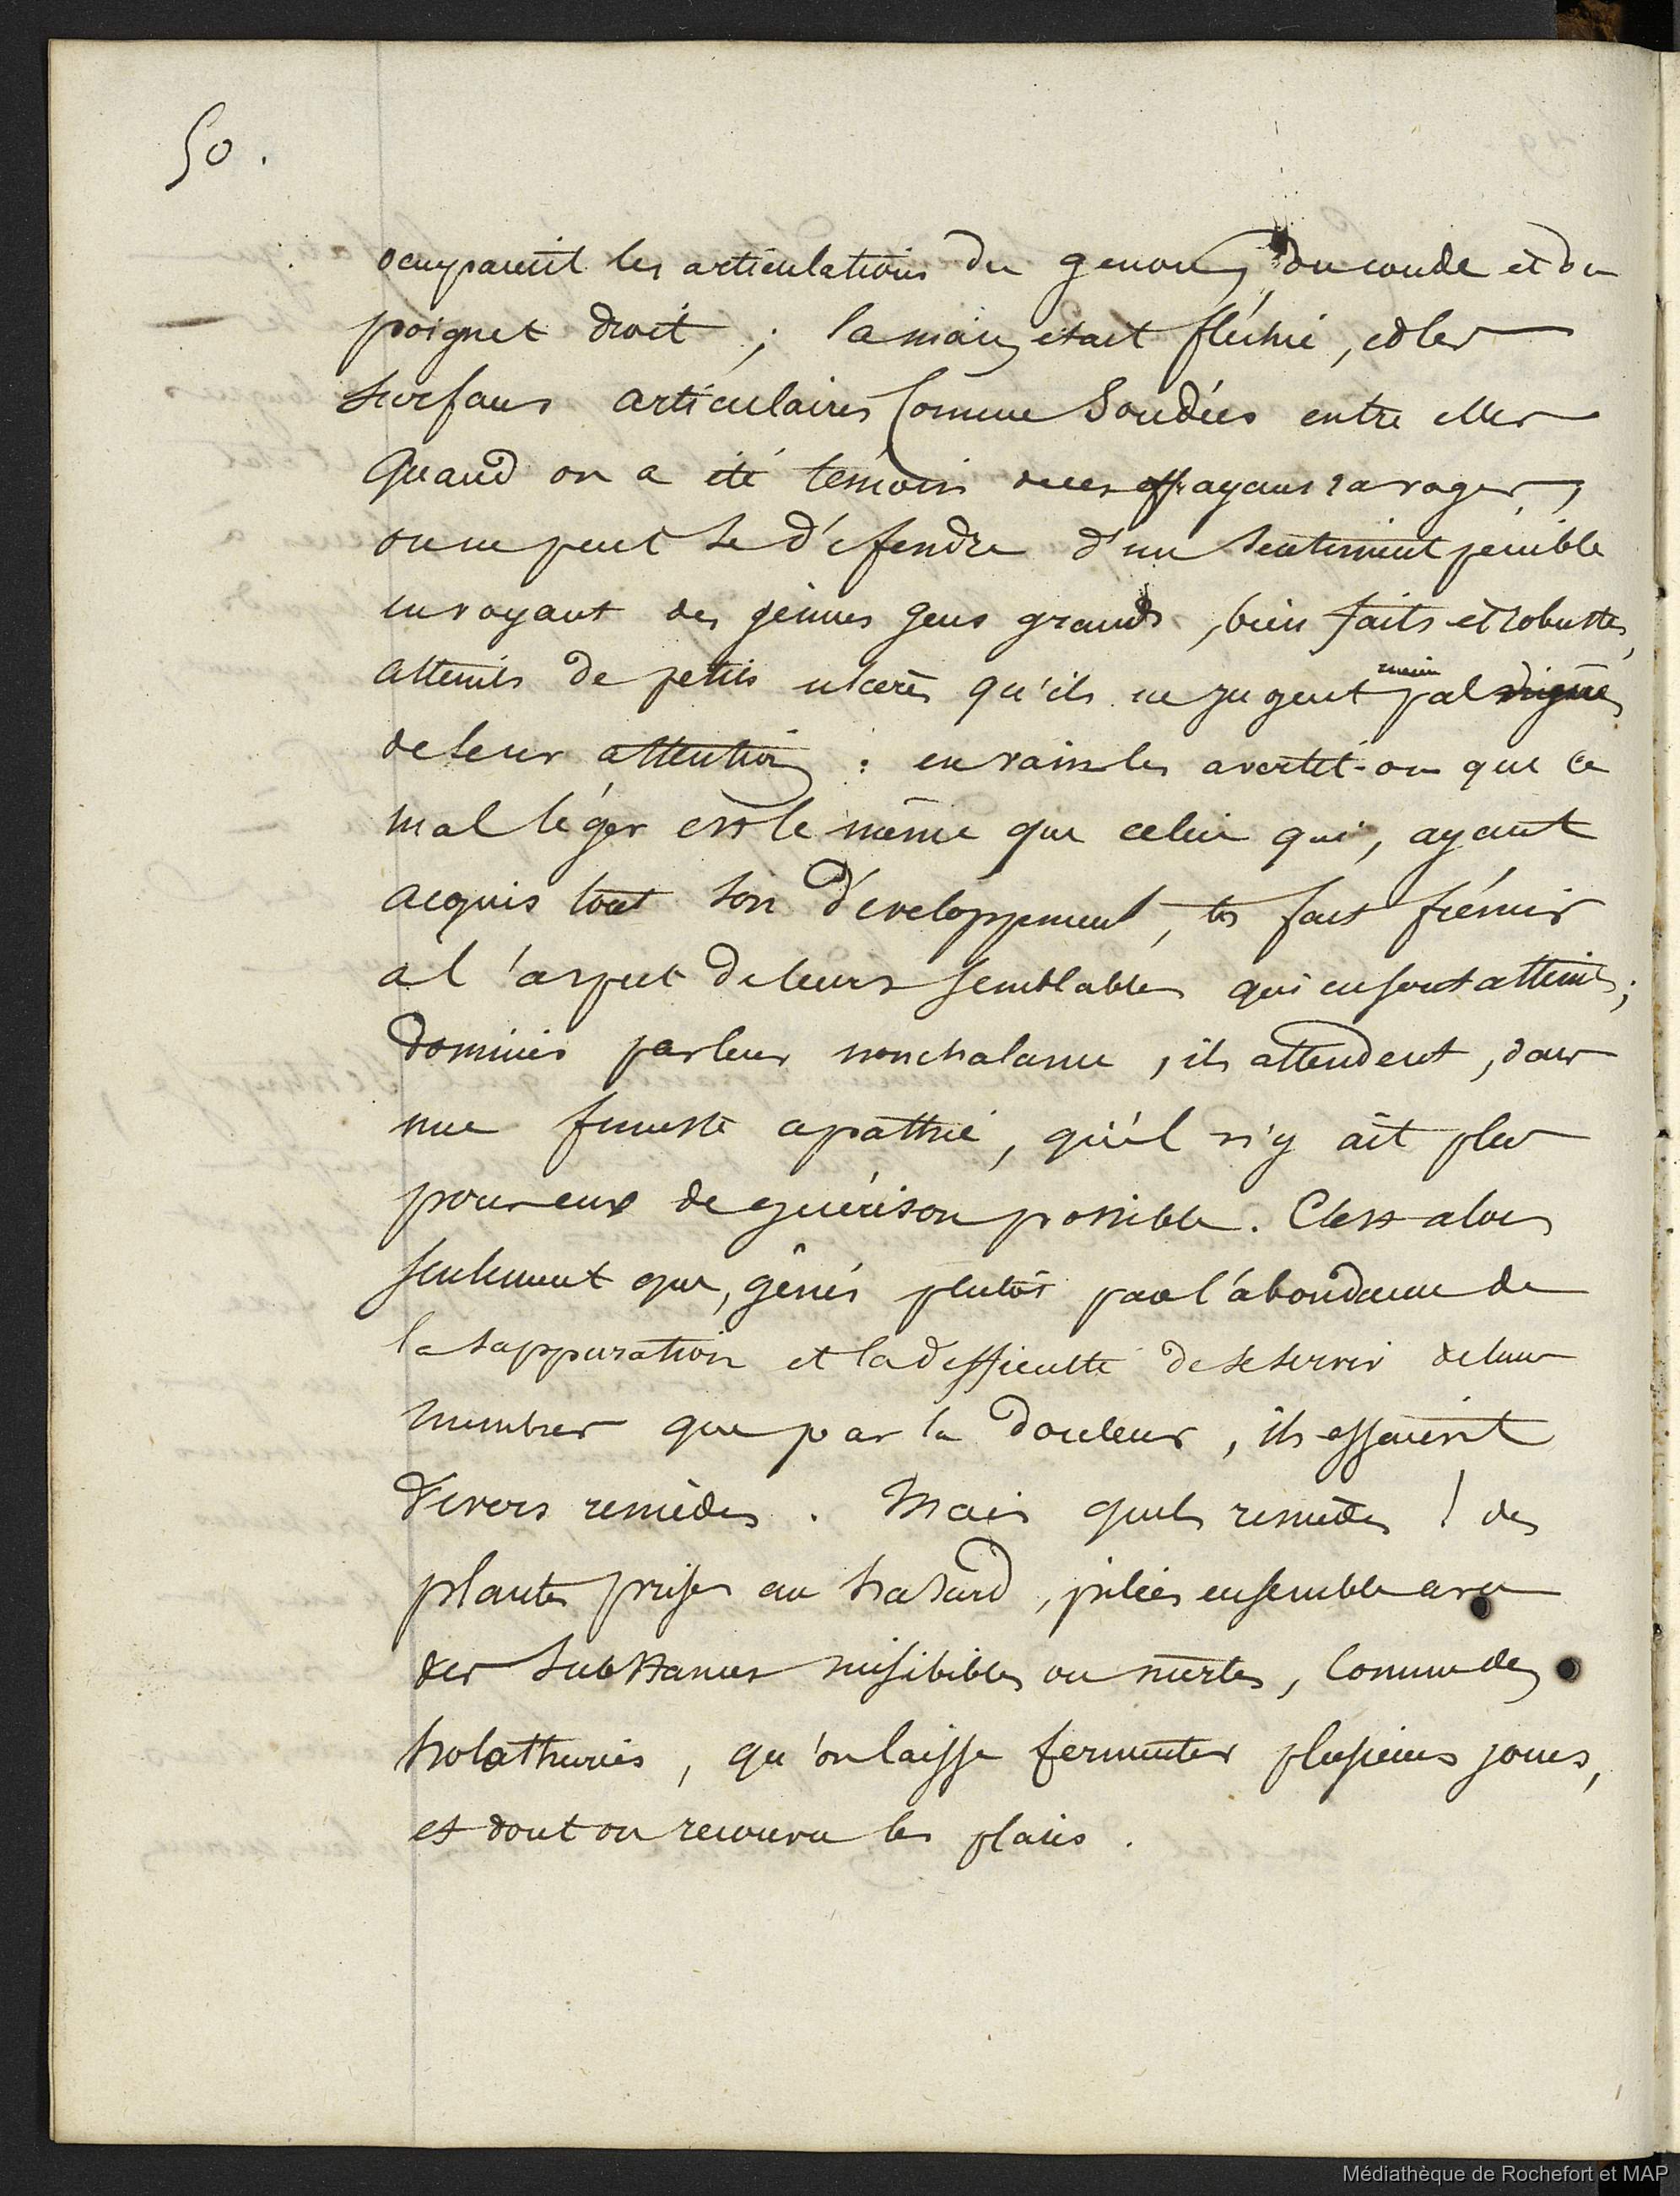 50.
occupaient les articulations du genou, du coude et du
poignet droit ; la main était fléchie, et les
surfaces articulaires comme soudées entre elles
Quand on a été témoin de ces effrayans ravages,
on ne peut se défendre d'un sentiment penible
en voyant des jeunes gens grands, bien faits et robustes,
atteints de petits ulcères qu'ils ne jugent pas dignes
de leur attention : en vain les avertit-on que ce
mal léger est le même que celui qui, ayant
acquis tout son développement, les fait frémir
à l'aspect de leurs semblables qui en sont atteints ;
dominés par leur nonchalance, ils attendent, dans
une funeste apathie, qu'il n'y ait plus
pour eux de guérison possible. C'est alors
seulement que, gênés plutôt par l'abondance de
la suppuration et la difficulté de se servir de leurs
membres que par la douleur, ils essaient
divers remèdes. Mais quels remèdes ! des
plantes prises au hasard, pilées ensemble avec
des substances nuisibles ou inertes, comme des
holothuries, qu'on laisse fermenter plusieurs jours,
et dont on recouvre les plaies.
Médiathèque de Rochefort et MAP